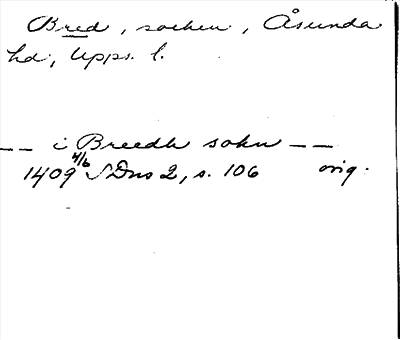 Bred, socken, Åsunda
hd; Upps. l.
-- i Breedh sokn --
1409 4/6 SDns 2, s. 106 orig.